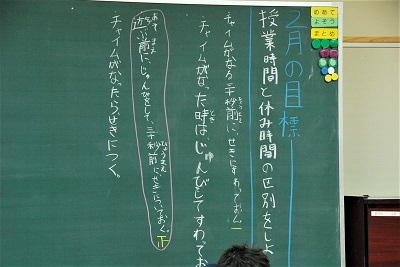 めあて
よそう
まとめ
2月の目標
授業時間と休み時間の区別をしよ
チャイムがなる三十秒前に、せきにすわっておく。一
チャイムがなった時は、じゅんびしてすわってお
遊ぶ前に、じゅんびをして、三十秒前にせきについておく。正
チャイムがなったらせきにつく。